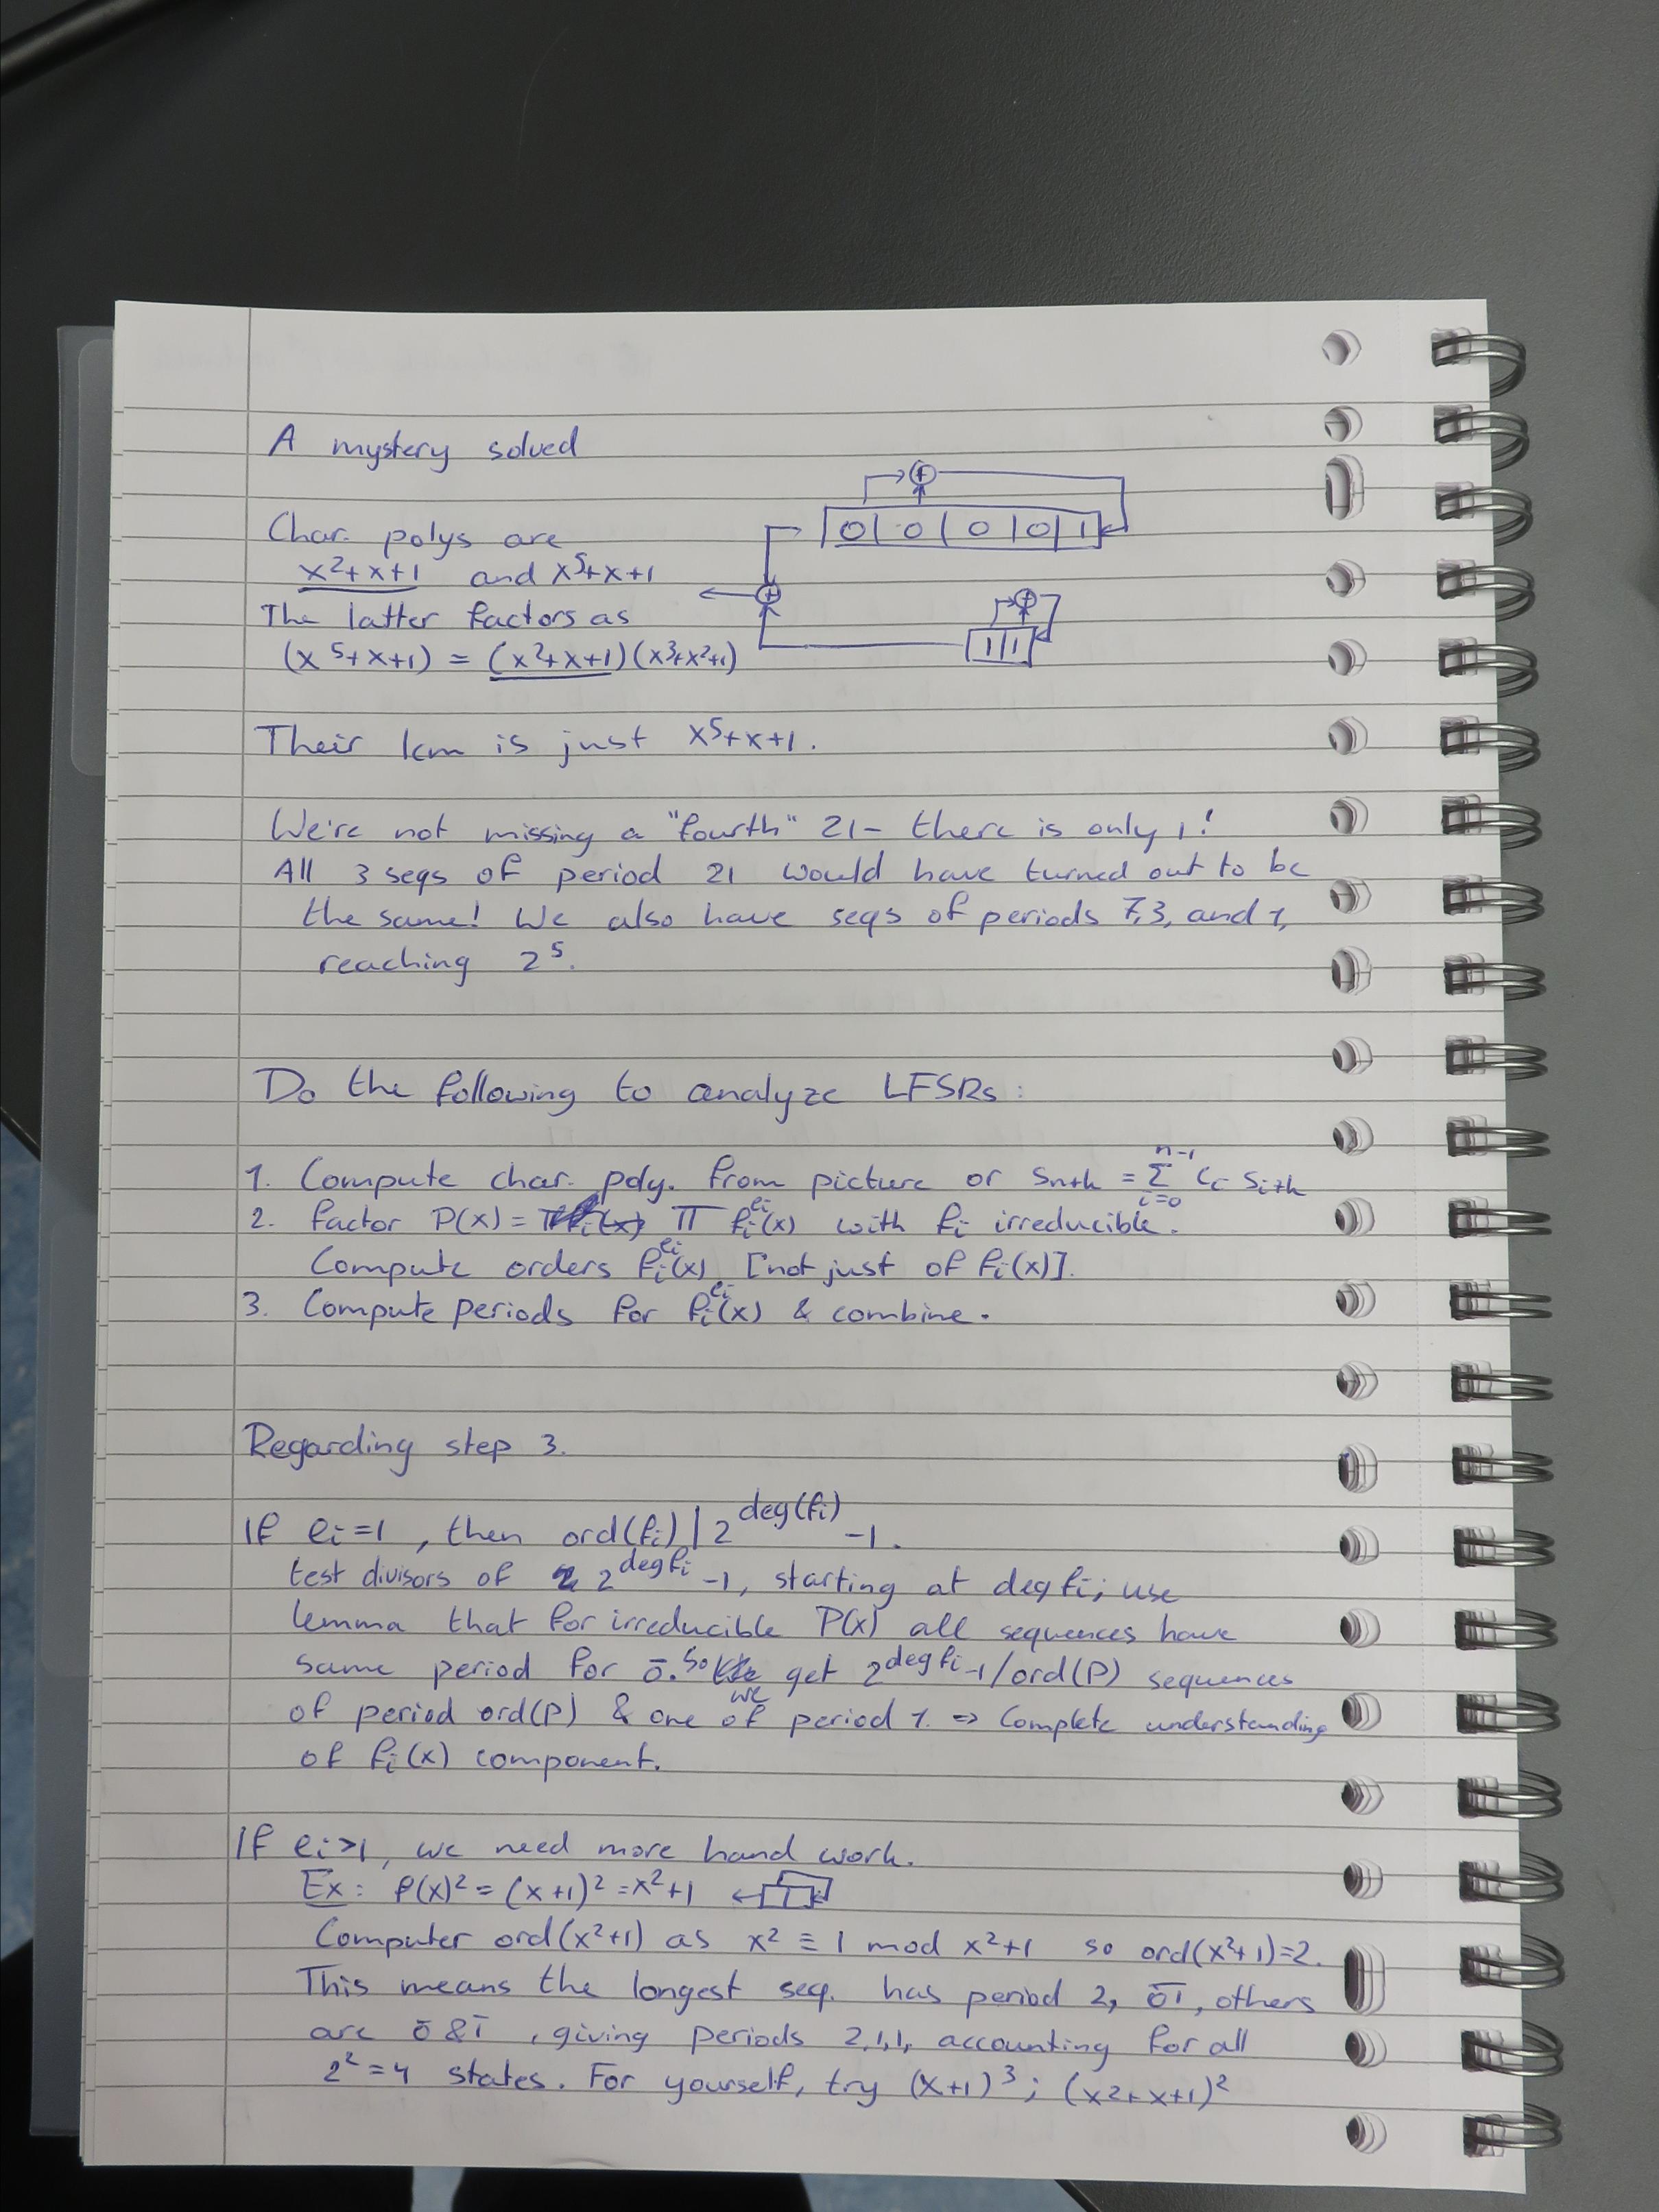 A mystery solved
Char. polys are
x²+x+1 and x⁵+x+1
The latter factors as
(x⁵+x+1) = (x²+x+1)(x³+x²+1)
|0|0|0|0|1|
|1|1|
Their lcm is just x⁵+x+1.
We're not missing a "fourth" 21 – there is only 1!
All 3 seqs of period 21 would have turned out to be
the same! We also have seqs of periods 7,3, and 1,
reaching 2⁵.
Do the following to analyze LFSRs:
1. Compute char. poly. from picture or Sn+k = Σ_{i=0}^{n-1} ci si+k
2. factor P(x) = Π fi^ei(x) with fi irreducible.
Compute orders fi^ei(x) [not just of fi(x)].
3. Compute periods for fi^ei(x) & combine.
Regarding step 3.
If ei=1, then ord(fi) | 2^deg(fi) -1.
test divisors of 2^deg fi -1, starting at deg fi; use
lemma that for irreducible P(x) all sequences have
same period for 0̄. So we get 2^deg fi -1/ord(P) sequences
of period ord(P) & one of period 1. ⇒ Complete understanding
of fi(x) component.
If ei>1, we need more hand work.
Ex: f(x)² = (x+1)² = x²+1
Computer ord(x²+1) as x² ≡ 1 mod x²+1 so ord(x²+1)=2.
This means the longest seq. has period 2, 0̄1̄, others
are 0̄ & 1̄, giving periods 2,1,1, accounting for all
2²=4 states. For yourself, try (x+1)³; (x²+x+1)²